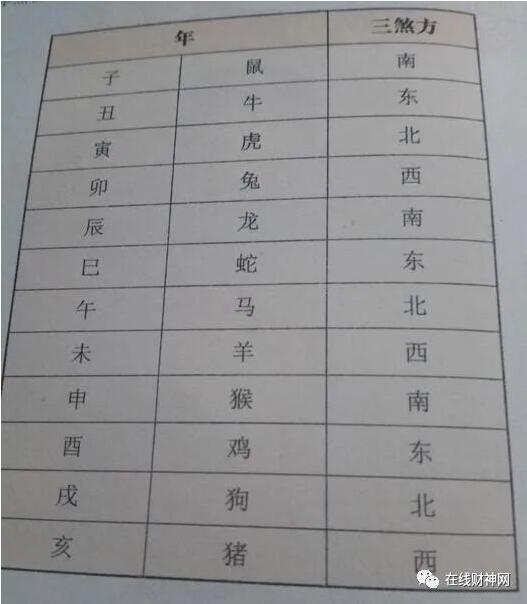 年 三煞方
子 鼠 南
丑 牛 东
寅 虎 北
卯 兔 西
辰 龙 南
巳 蛇 东
午 马 北
未 羊 西
申 猴 南
酉 鸡 东
戌 狗 北
亥 猪 西
在线财神网